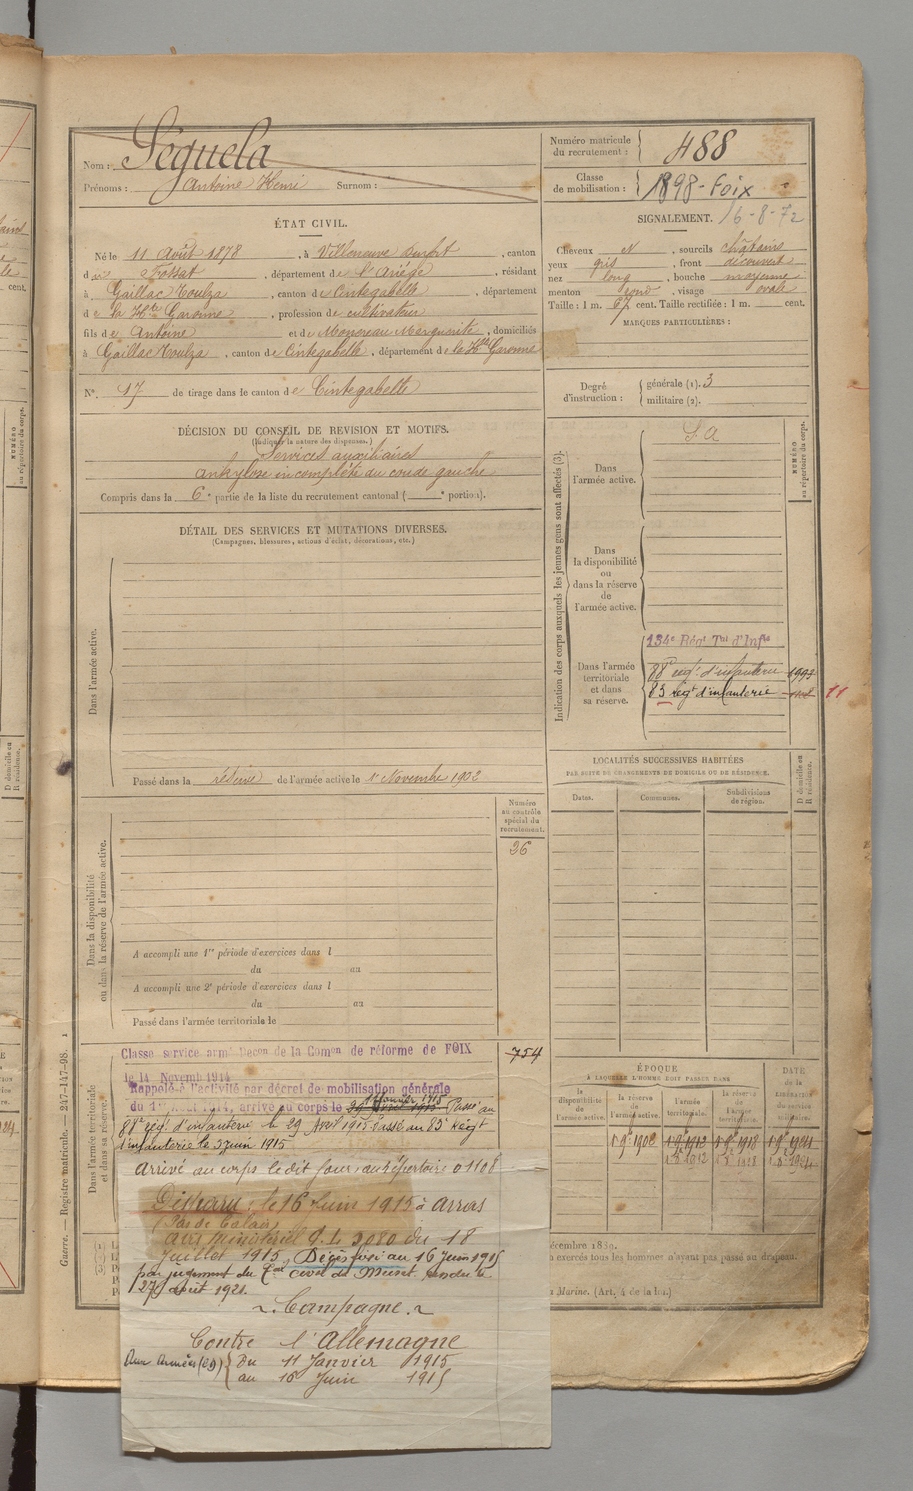 Nom : Séguela
Prénoms : Antoine Henri Surnom :
Numéro matricule du recrutement : 488
Classe de mobilisation : 1898 - Foix
ÉTAT CIVIL.
Né le 11 Août 1878, à Villeneuve Durfort, canton
d Fossat, département de l'Ariège, résidant
à Gaillac Toulza, canton de Cintegabelle, département
de la Hte Garonne, profession de cultivateur
fils de Antoine et de Marguerite, domiciliés
à Gaillac Toulza, canton de Cintegabelle, département de la Hte Garonne
N° 17 de tirage dans le canton de Cintegabelle
SIGNALEMENT. 16-8-72
Cheveux N, sourcils châtains
yeux gis, front découvert
nez long, bouche moyenne
menton rond, visage ovale
Taille : 1 m. 67 cent. Taille rectifiée : 1 m. cent.
MARQUES PARTICULIÈRES :
Degré d'instruction : générale (1). 3
militaire (2).
DÉCISION DU CONSEIL DE REVISION ET MOTIFS.
(Indiquer la nature des dispenses.)
Services auxiliaires
ankylose incomplète du coude gauche
Compris dans la 6e partie de la liste du recrutement cantonal ( e portion).
DÉTAIL DES SERVICES ET MUTATIONS DIVERSES.
(Campagnes, blessures, actions d'éclat, décorations, etc.)
Dans l'armée active.
Passé dans la réserve de l'armée active le 1er Novembre 1902
Indication des corps auxquels les jeunes gens sont affectés (3).
NUMÉRO au répertoire du corps.
Dans l'armée active.
S. A
Dans la disponibilité ou dans la réserve de l'armée active.
Dans l'armée territoriale et dans sa réserve.
134e Régt Tal d'Infie
88e régt d'infanterie 1993
83 Régt d'infanterie 11
Numéro au contrôle spécial du recrutement.
26
Dans la disponibilité ou dans la réserve de l'armée active.
A accompli une 1re période d'exercices dans l
du au
A accompli une 2e période d'exercices dans l
du au
Passé dans l'armée territoriale le
LOCALITÉS SUCCESSIVES HABITÉES
PAR SUITE DE CHANGEMENTS DE DOMICILE OU DE RÉSIDENCE.
Dates. Communes. Subdivisions de région. D domicile ou R résidence.
Dans l'armée territoriale et dans sa réserve.
754
Classé service armé Décon de la Comon de réforme de FOIX
le 14 Novemb 1914
Rappelé à l'activité par décret de mobilisation générale
du 1er Août 1914, arrivé au corps le 11 Janvier 1915 Passé au
88e régt d'infanterie le 29 Avril 1915 Passé au 83e Régt
d'infanterie le 3 juin 1915
Arrivé au corps le dit jour au répertoire 01108
Disparu : le 16 Juin 1915 à Arras
(Pas de Calais)
avis ministériel du 18
Juillet 1915. Décès fixé au 16 Juin 1915
par jugement du Tal civil de Muret rendu le
27 août 1921.
Campagne.
Contre l'Allemagne
Aux Armées Du 11 Janvier 1915
au 16 Juin 1915
ÉPOQUE
À LAQUELLE L'HOMME DOIT PASSER DANS
la disponibilité de l'armée active. la réserve de l'armée active. l'armée territoriale. la réserve de l'armée territoriale.
DATE de la LIBÉRATION du service militaire.
1 9bre 1902
écembre 1889.
exercés tous les hommes n'ayant pas passé au drapeau.
Marine. (Art. 4 de la loi.)
Guerre. — Registre matricule. — 247-147-98.